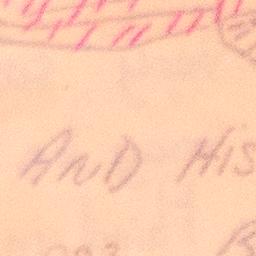 AND HIS